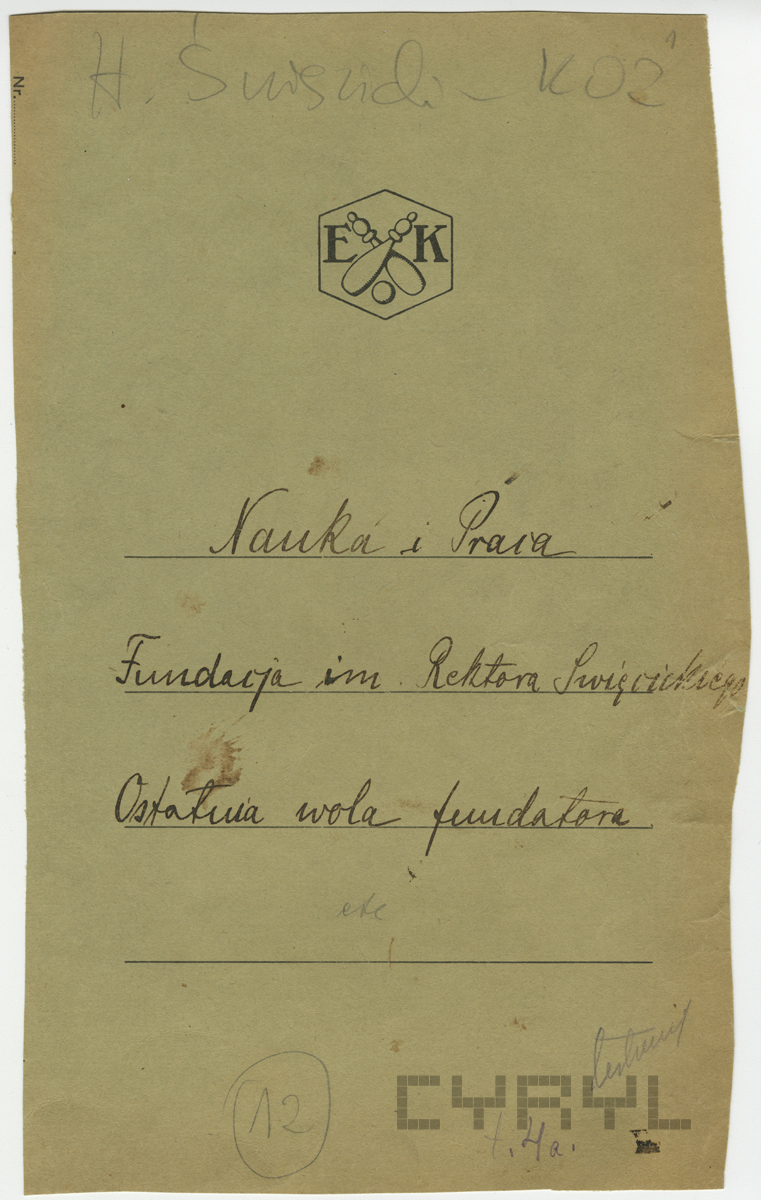 1
H. Święcicki - K02
Nr.
E K
Nauka i Praca
Fundacja im. Rektora Święcickiego
Ostatnia wola fundatora.
etc
12
CYRYL
t. 4a.